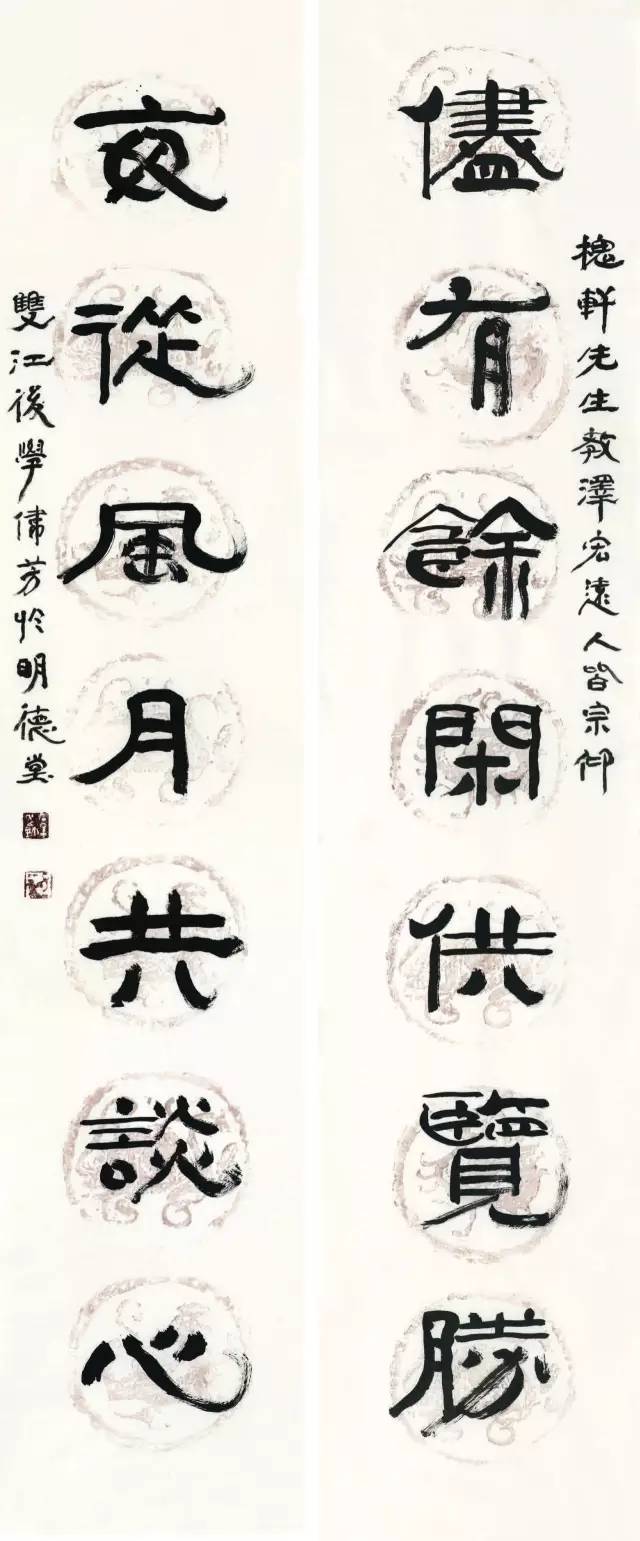 槐軒先生教澤宏遠人皆宗仰
儘有餘閑供覽勝
更從風月共談心
雙江後學芳於明德堂